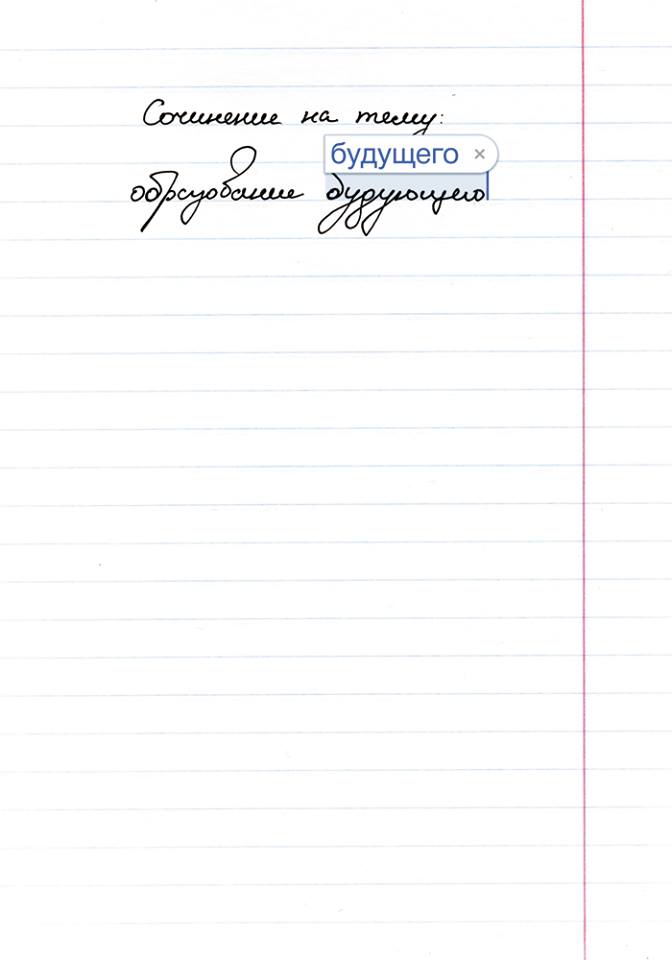 Сочинение на тему:
будущего ×
образование будующего